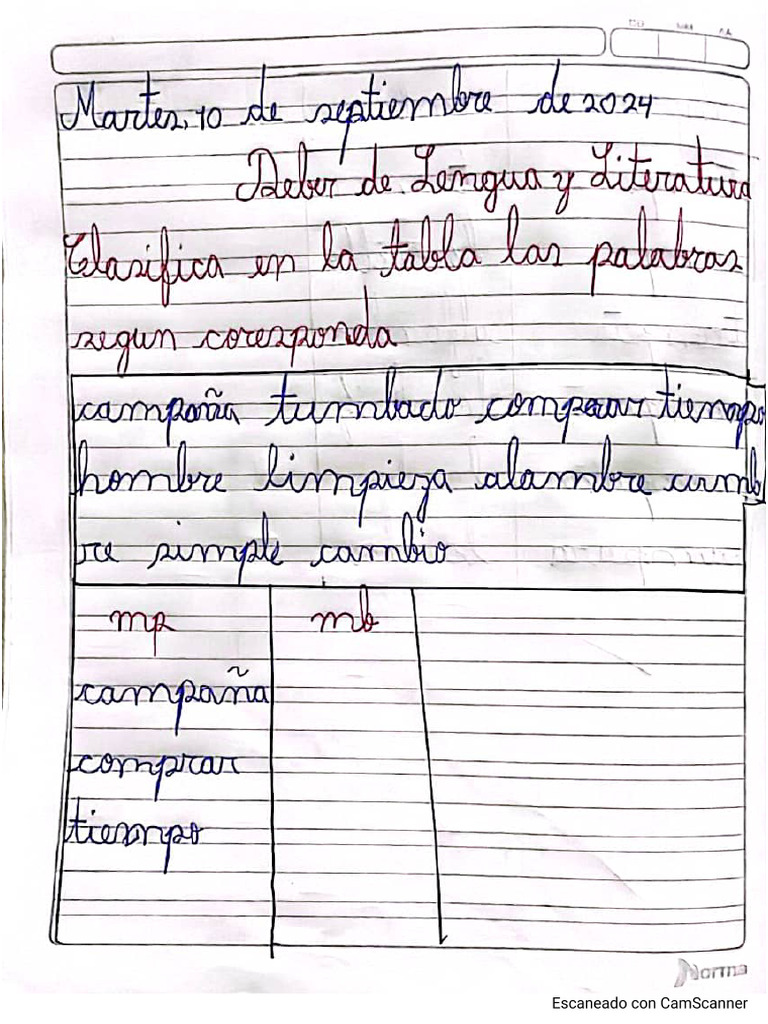 Martes, 10 de septiembre de 2024
Deber de Lengua y Literatura
Clasifica en la tabla las palabras
segun coresponda
campaña tumbado comparar tiempo
hombre limpieza alambre cumb
re simple cambio
mp mb
campaña
comprar
tiempo
Norma
Escaneado con CamScanner